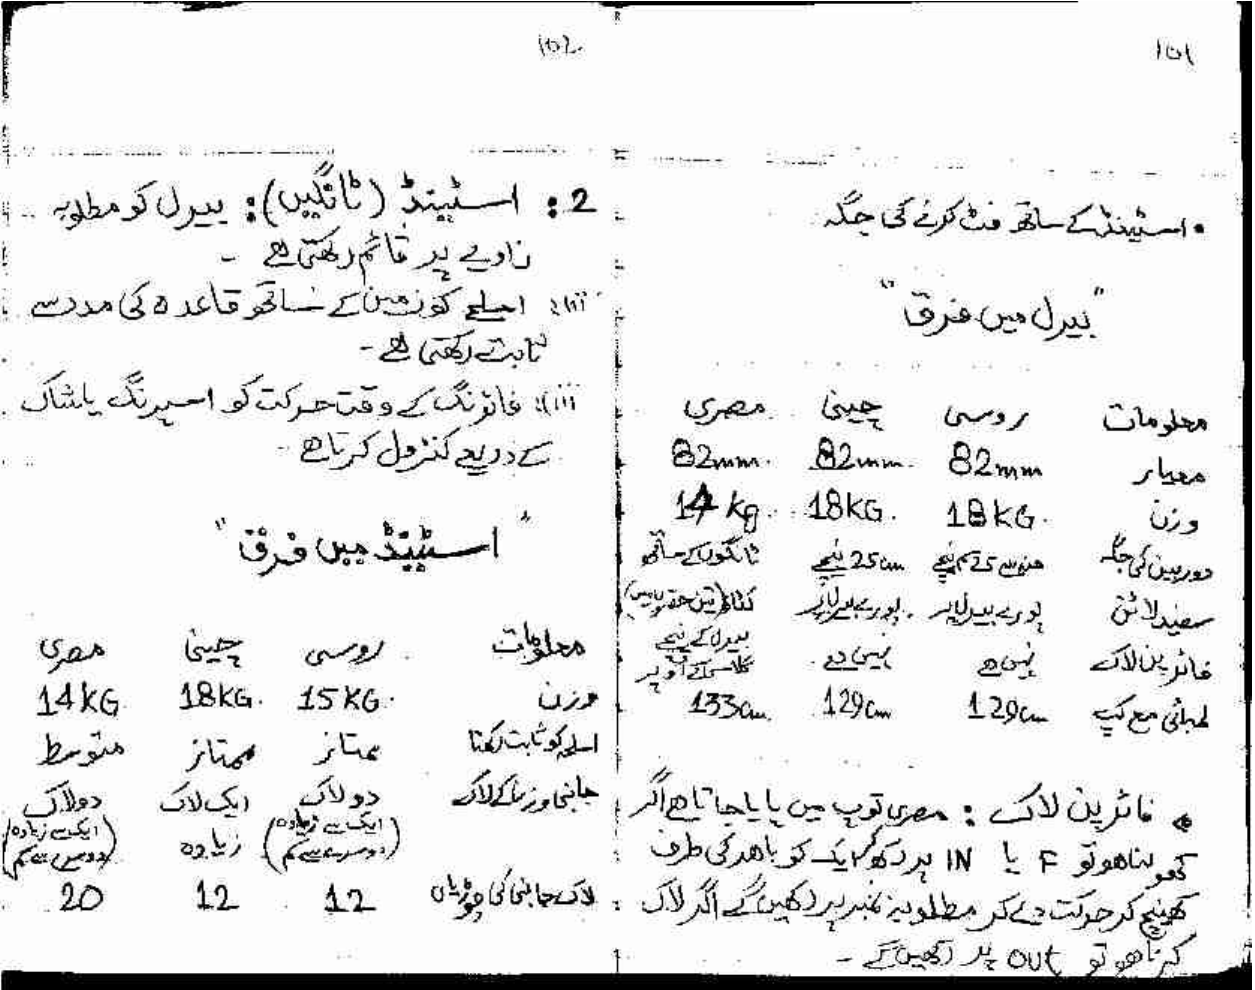 101
• اسٹینڈ کے ساتھ فٹ کرنے کی جگہ
"بیرل میں فرق"
معلومات روسی چینی مصری
معیار 82mm 82mm. 82mm.
وزن 18KG. 18KG. 14kg.
دوربین کی جگہ منہ سے 25 سم نیچے 25cm نیچے ٹانگوں کے ساتھ
سفید لائن پورے بیرل پر پورے بیرل پر (تین حصوں میں)
بیرل کے نیچے
فائرین لاک نہیں ہے نہیں ہے. کے اوپر
لمبائی مع کپ 129cm 129cm 133cm.
• فائرین لاک : مصری توپ میں پایا جاتا ہے اگر
کھولنا ہو تو F یا IN پر رکھ کر ایک کو باھر کی طرف
کھینچ کر حرکت دے کر مطلوبہ نمبر پر رکھیں گے اگر لاک
کرنا ھو تو OUT پر رکھیں گے ۔
102
2 : اسٹینڈ (ٹانگیں) : بیرل کو مطلوبہ
زاویے پر قائم رکھتی ہے ۔
ii): اسلحے کو زمین کے ساتھ قاعدہ کی مدد سے
ثابت رکھتی ہے ۔
iii): فائرنگ کے وقت حرکت کو اسپرنگ یا شاک
کے ذریعے کنٹرول کرتا ھے ۔
"اسٹینڈ میں فرق"
معلومات روسی چینی مصری
وزن 15KG. 18KG. 14KG
اسلحہ کو ثابت رکھنا ممتاز ممتاز متوسط
جانبی اور کے لاک دو لاک ایک لاک دو لاک
(ایک سے زیادہ زیادہ (ایک سے زیادہ
دوسرے سے کم) دوسرے سے کم)
لاک جانبی کی چوڑیاں 12 12 20